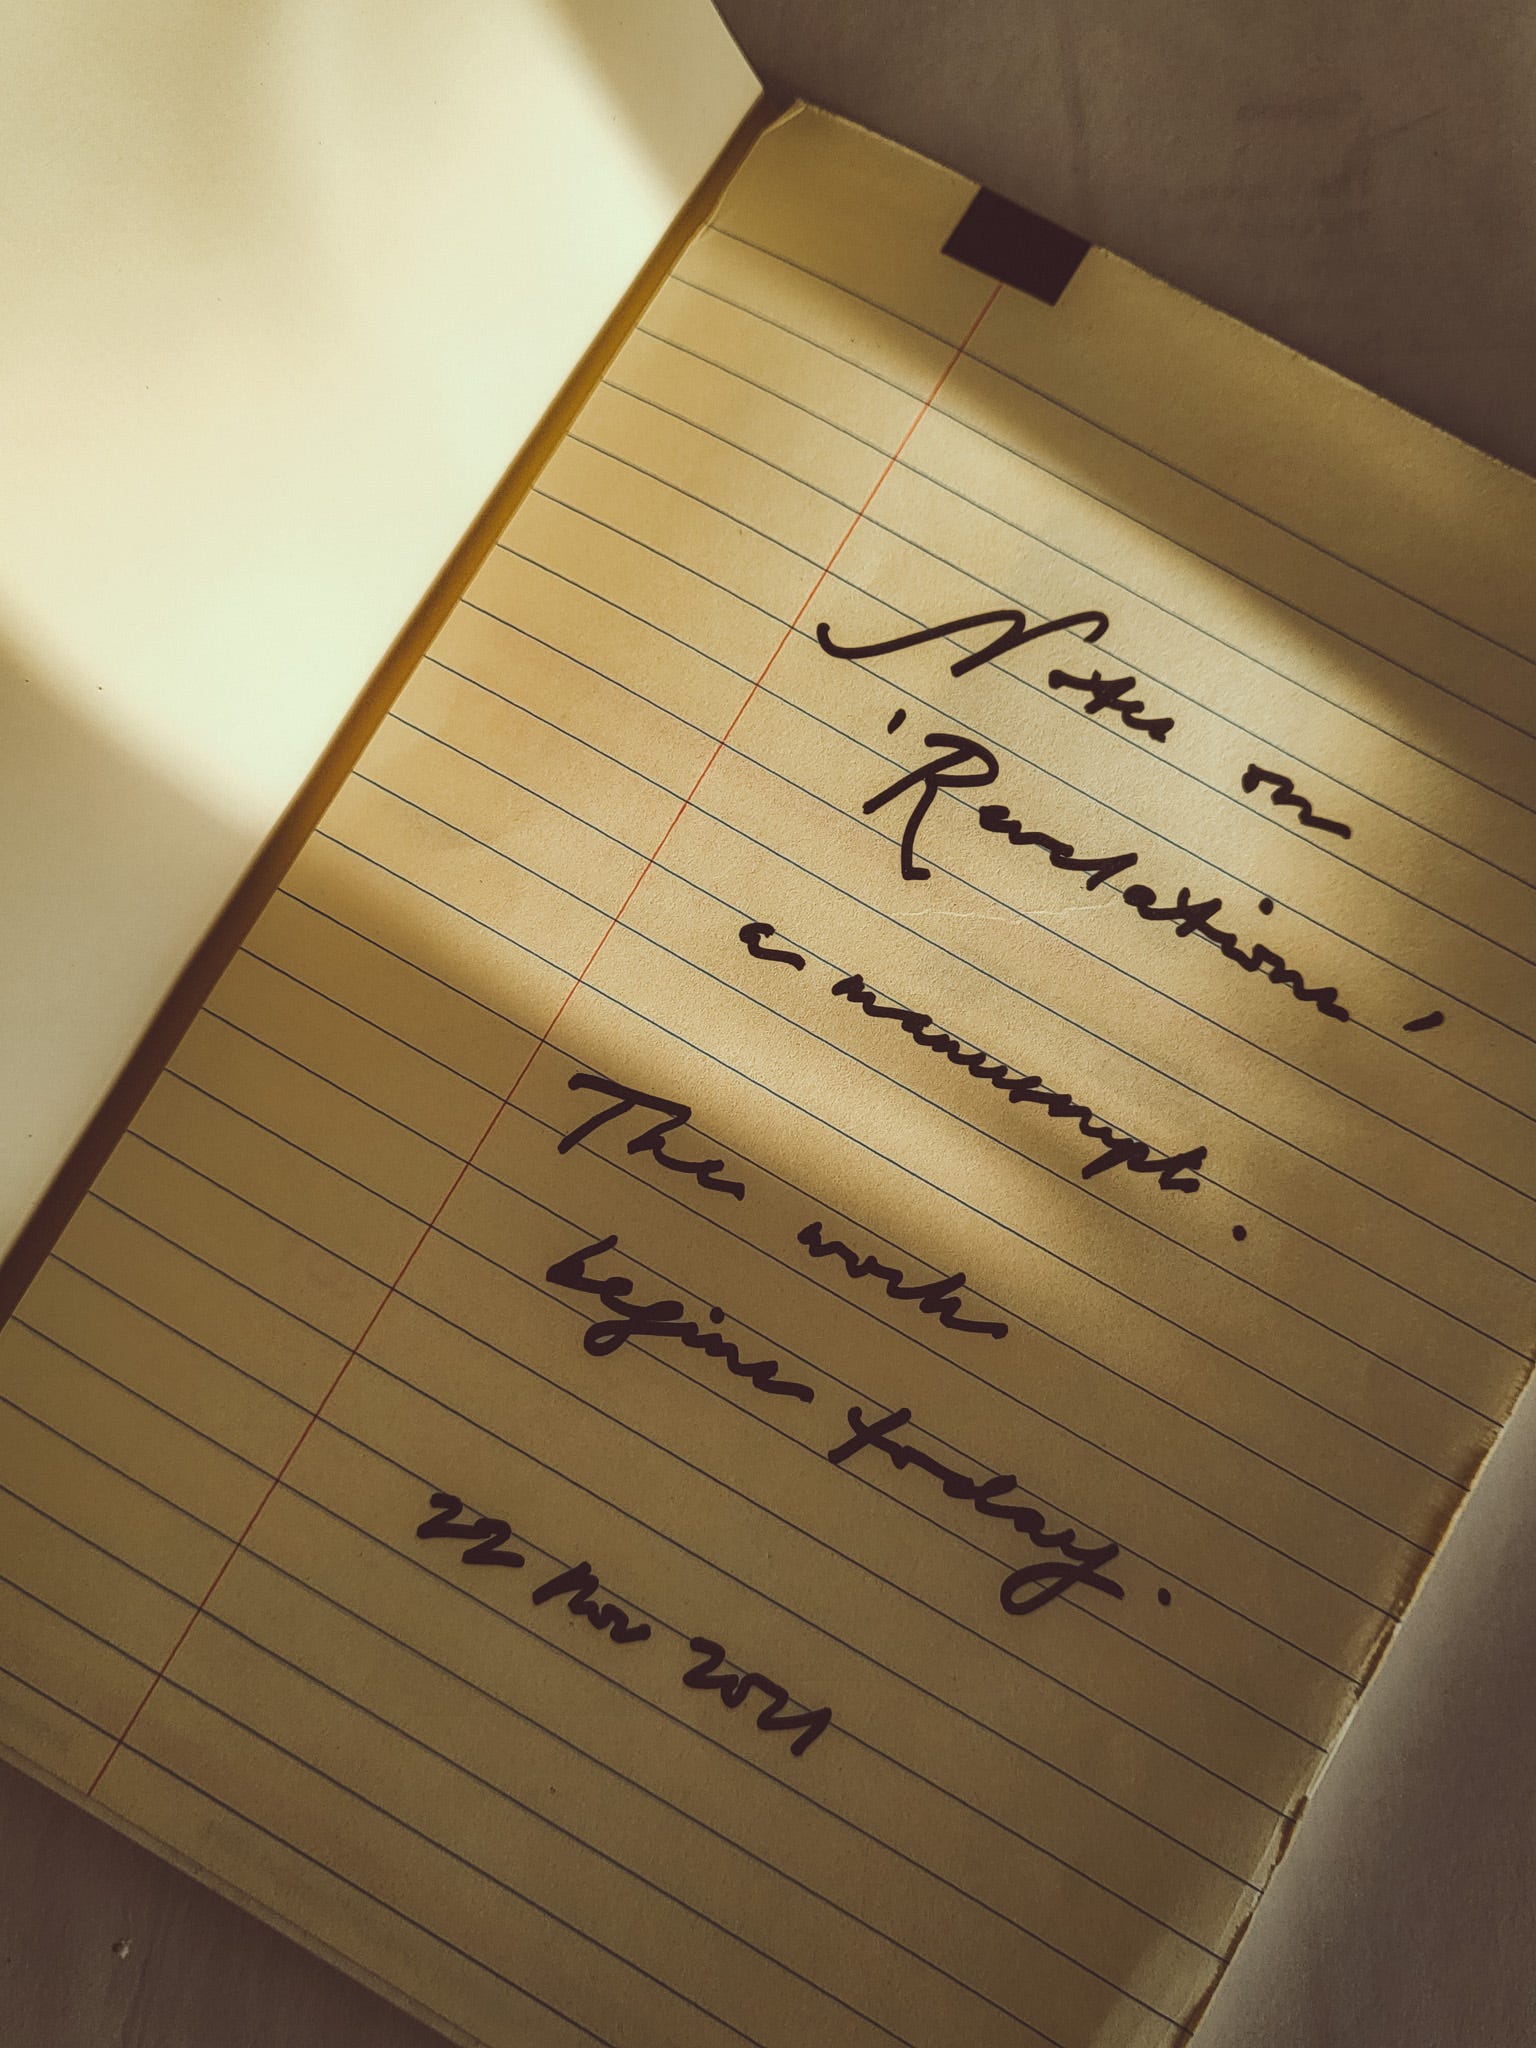 Notes on
'Revelations'
a manuscript.
The work
begins today.
22 Nov 2021